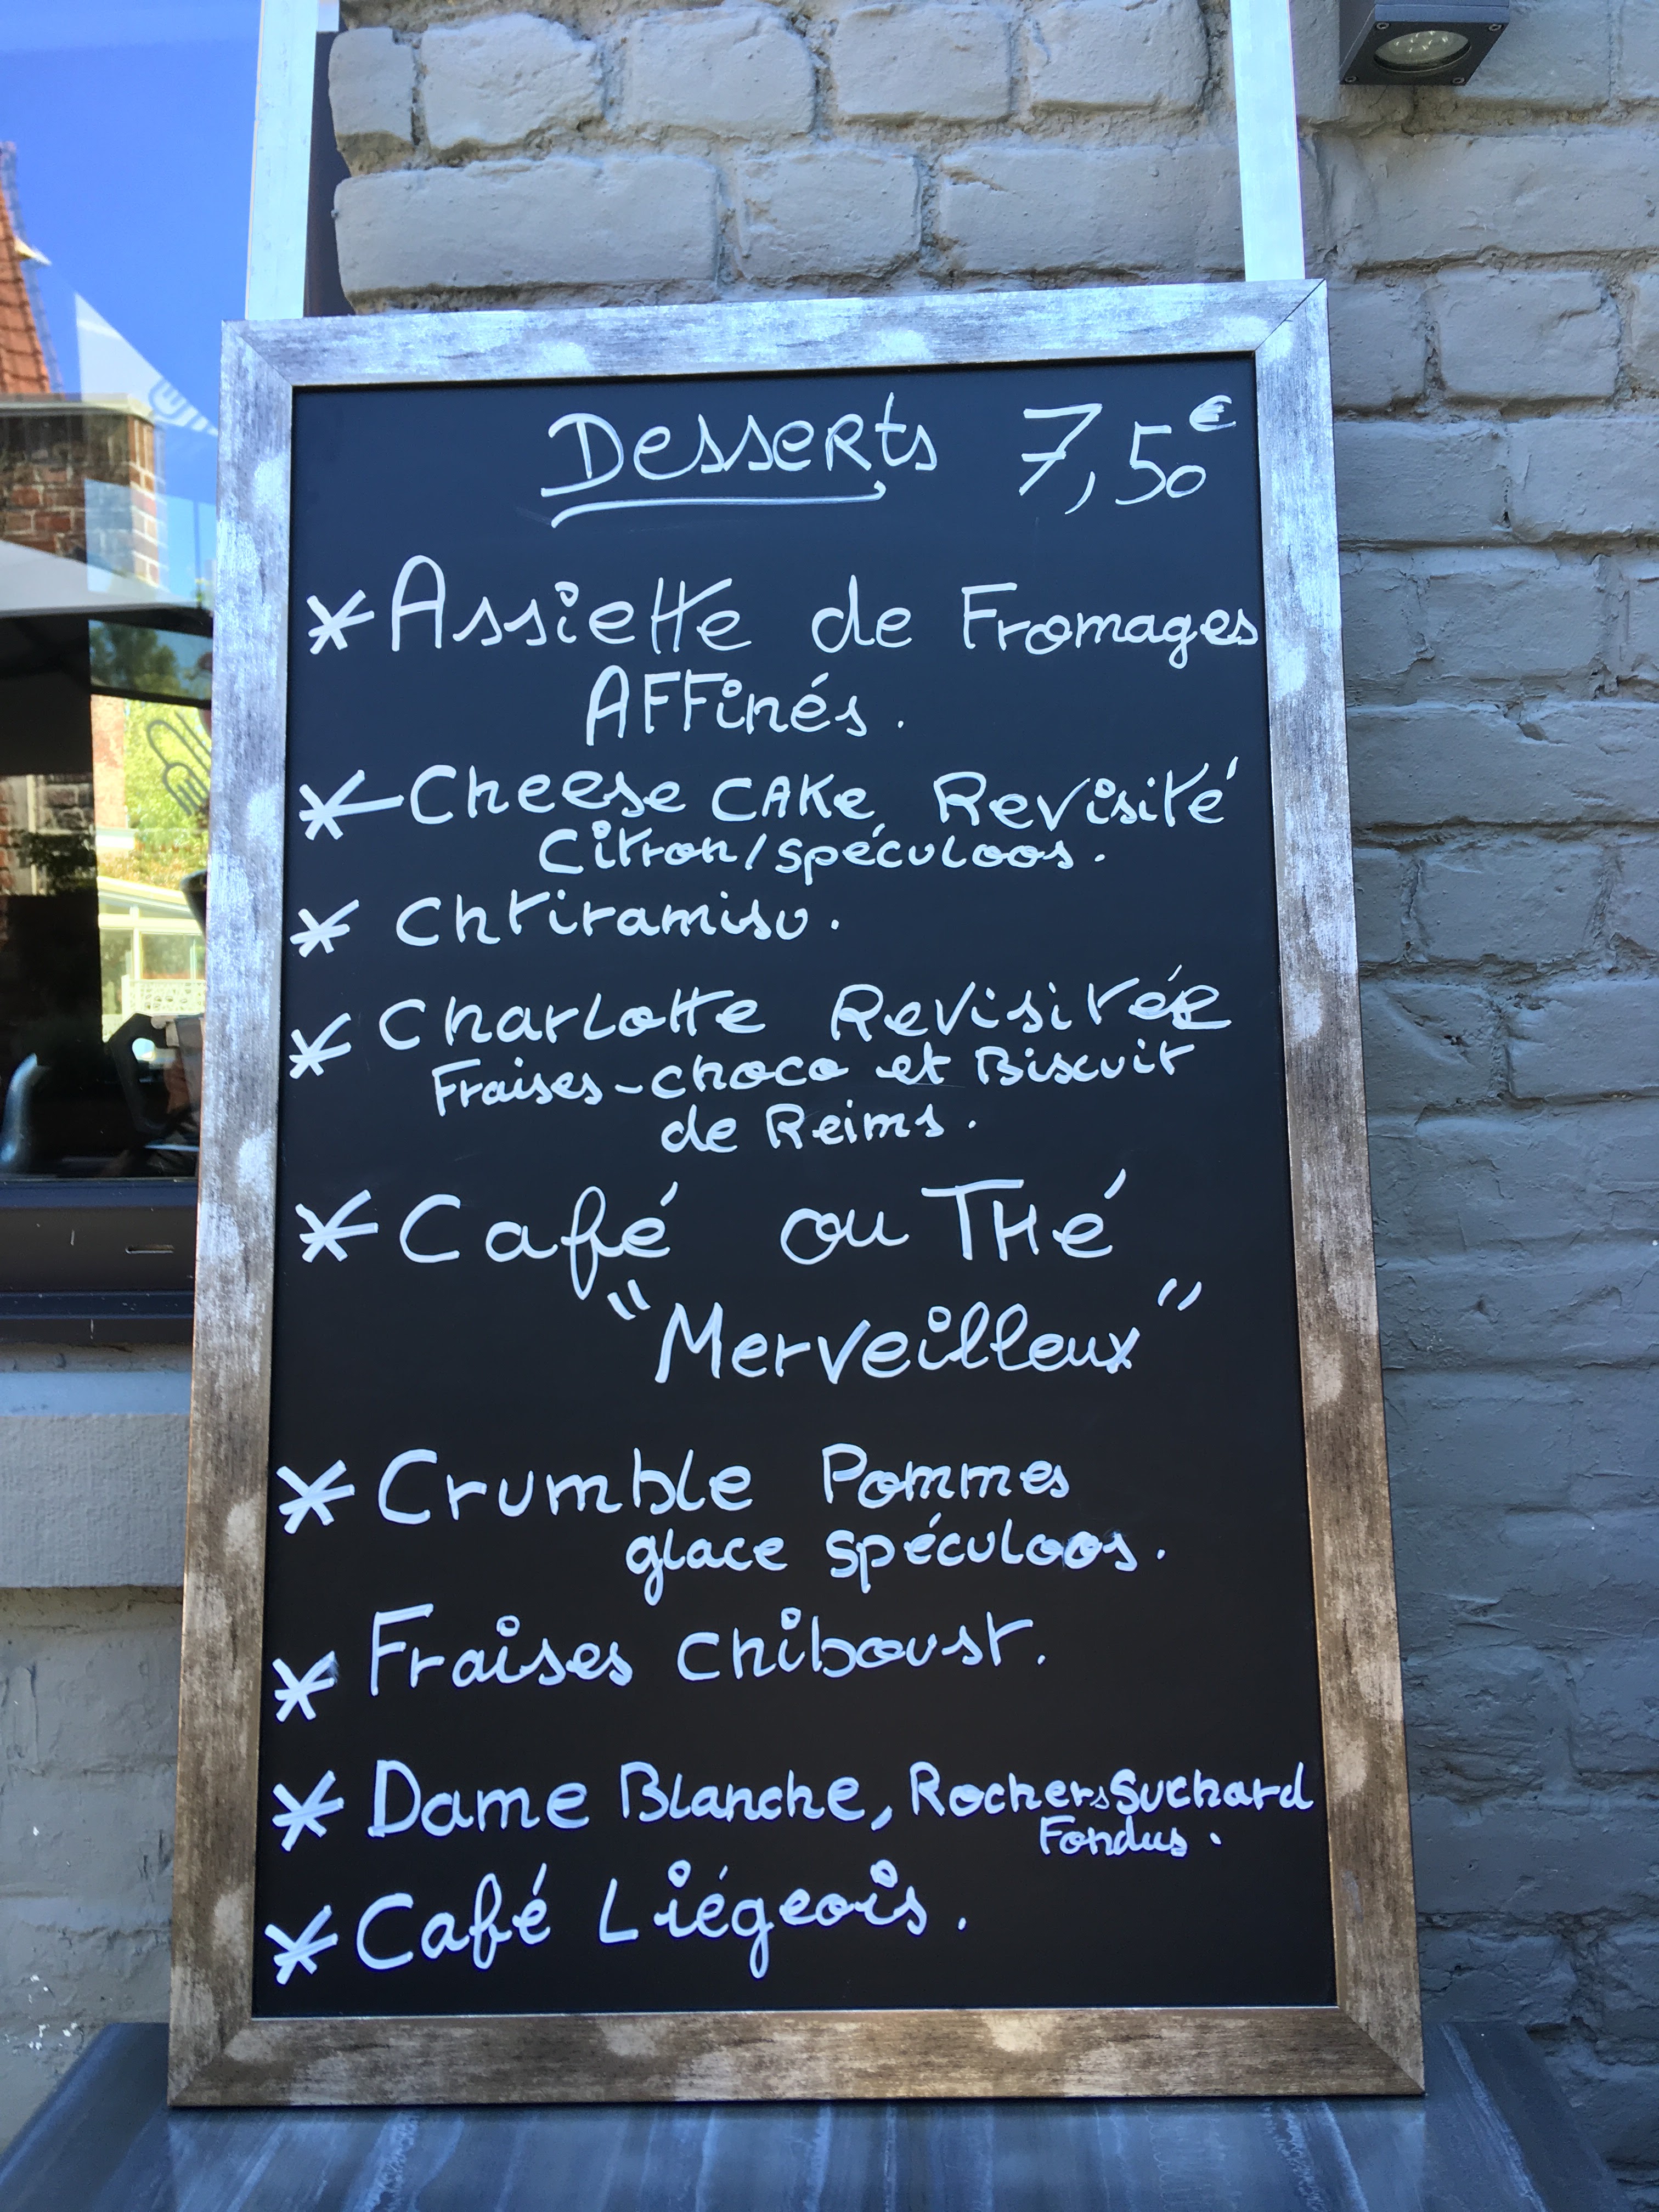 Desserts 7,50€
* Assiette de Fromages
Affinés.
* Cheese CAKe Revisité
Citron/spéculoos.
* Chtiramisu.
* Charlotte Revisitée
Fraises-choco et Biscuit
de Reims.
* Café ou THé
"Merveilleux"
* Crumble Pommes
glace spéculoos.
* Fraises chiboust.
* Dame Blanche, Rochers Suchard
Fondus.
* Café Liégeois.